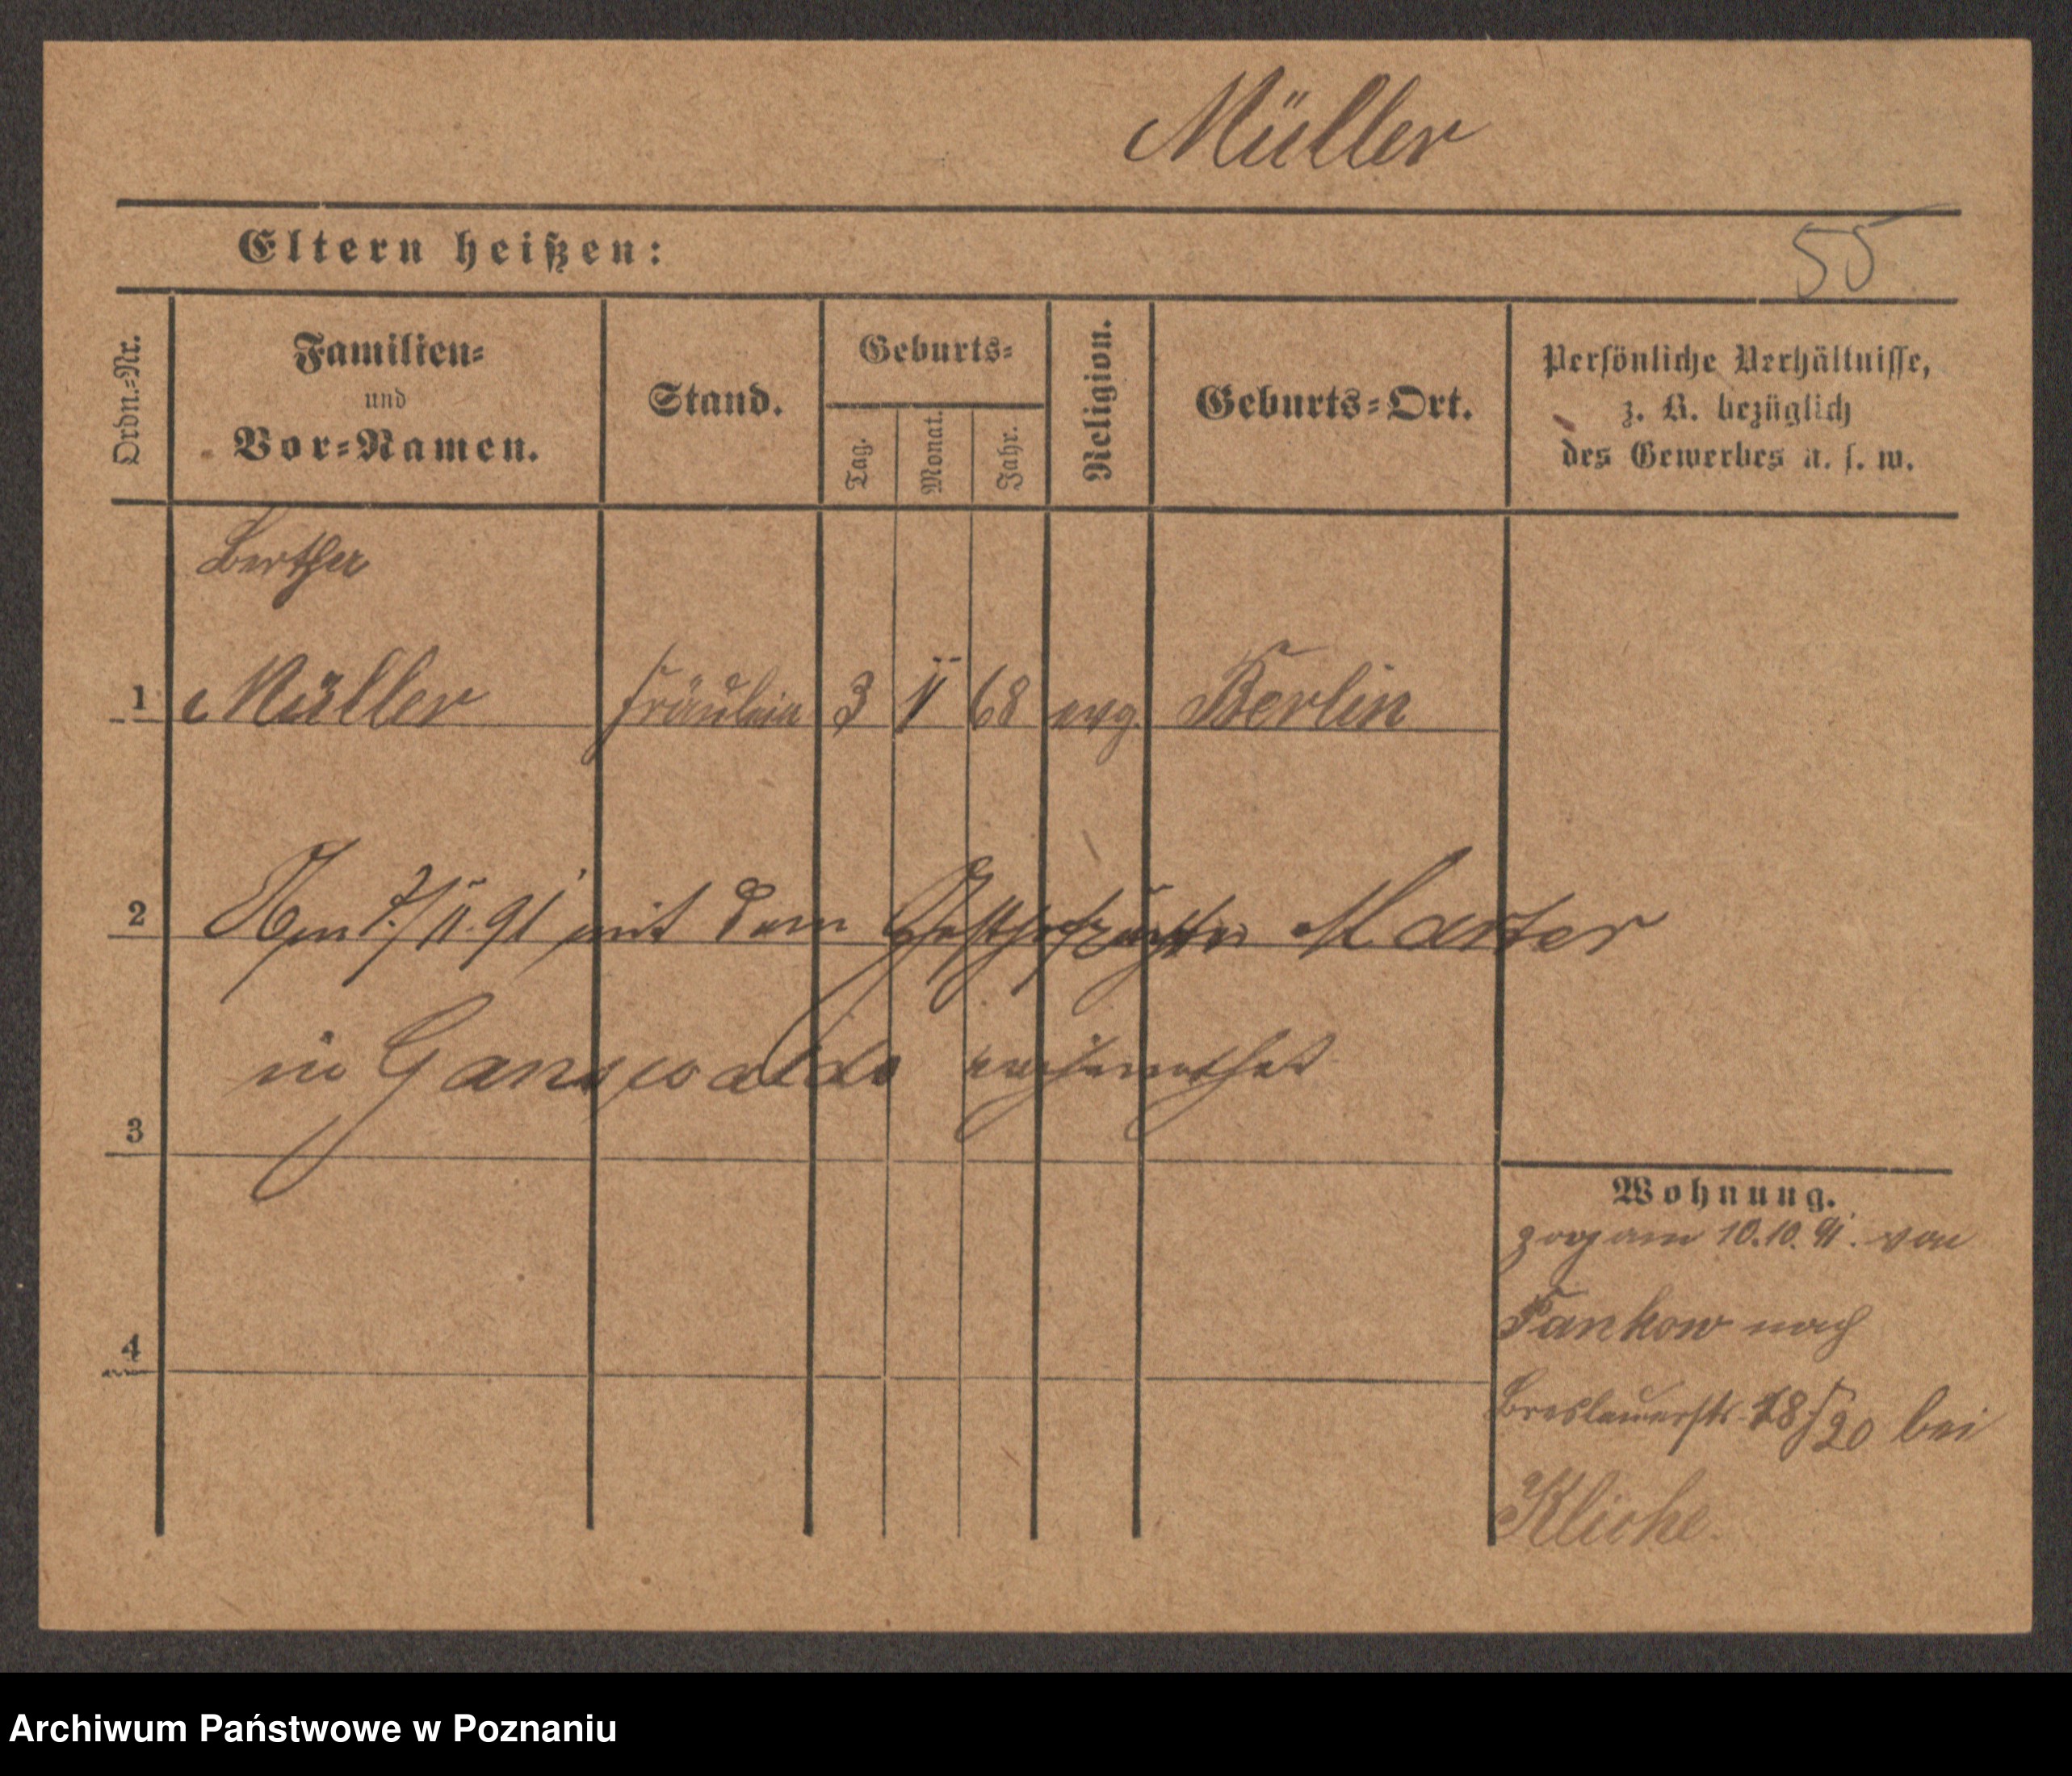 Müller
Eltern heißen:
55
Ordn.=Nr.
Familien=
und
Vor=Namen.
Stand.
Geburts=
Tag.
Monat.
Jahr.
Religion.
Geburts=Ort.
Persönliche Verhältnisse,
z. B. bezüglich
des Gewerbes u. s. w.
Bertha
1 Müller Fräulein 3 11 68 evg. Berlin
2 Am 7/11. 91 mit dem Marter
in verheirathet
3
Wohnung.
zog am 10.10. 91. von
Pankow nach
4
Breslauerstr. 18/20 bei